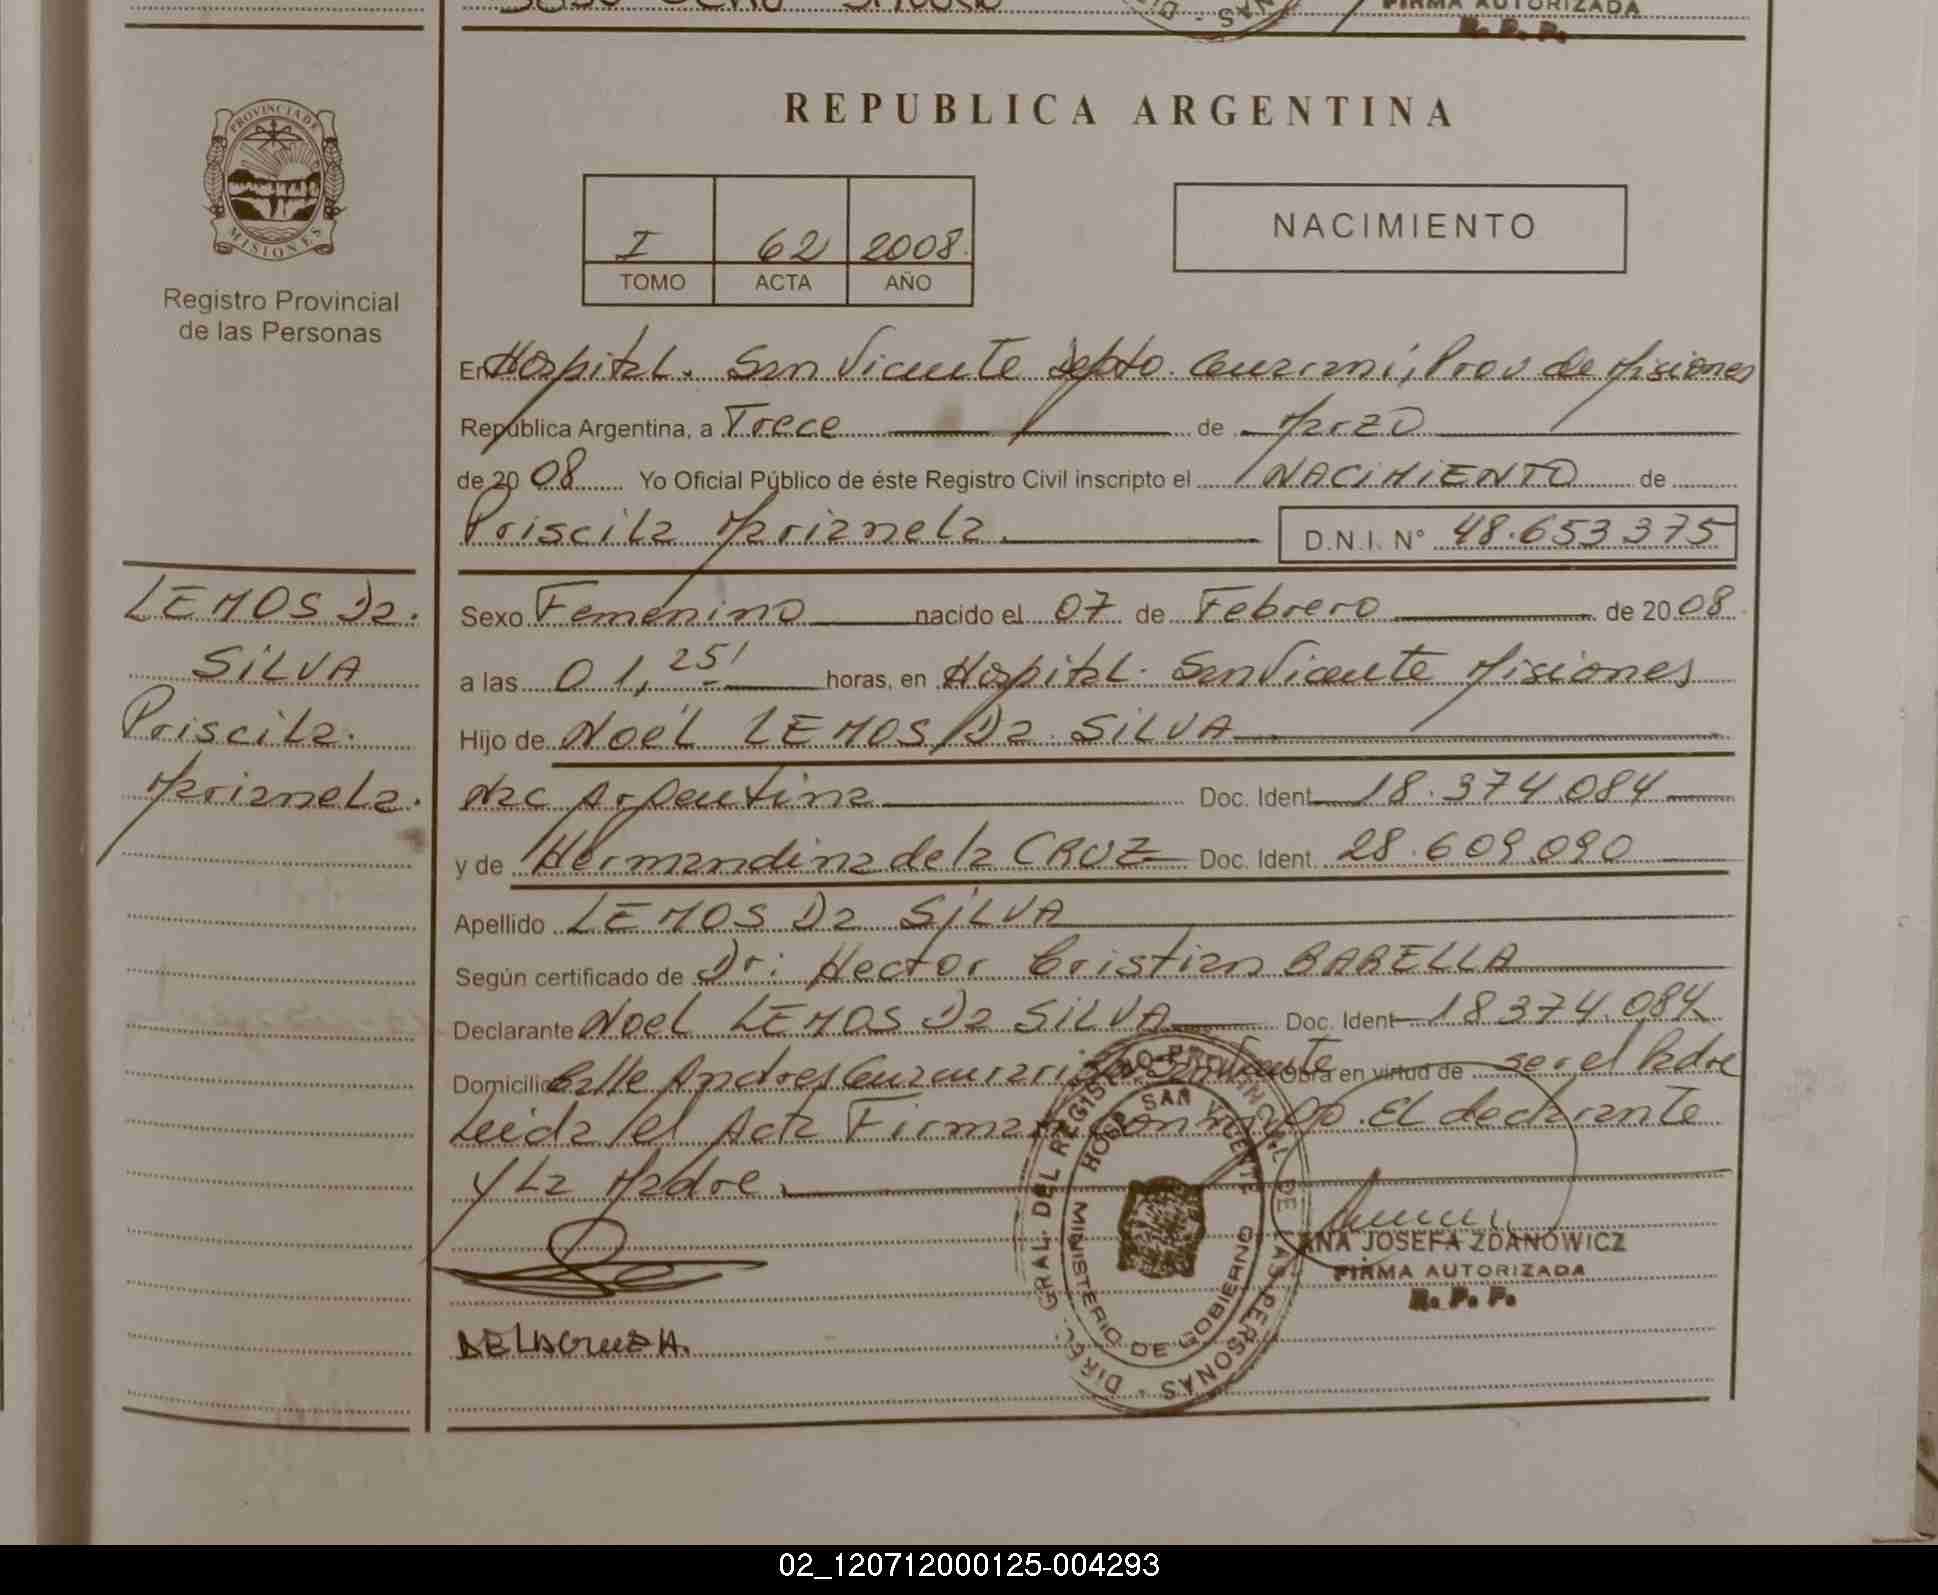 FIRMA AUTORIZADA
R. P. P.
PROVINCIA DE
MISIONES
Registro Provincial
de las Personas
REPUBLICA ARGENTINA
I 62 2008.
TOMO ACTA AÑO
NACIMIENTO
En Hospital. San Vicente depto. Guarani, Prov de Misiones
República Argentina, a Trece de Marzo
de 20 08 Yo Oficial Público de éste Registro Civil inscripto el NACIMIENTO de
Priscila Marianela. D.N.I. N° 48.653375
LEMOS Da.
SILVA
Priscila.
Marianela.
Sexo Femenino nacido el 07 de Febrero de 20 08
a las 01,25' horas, en Hospital. San Vicente Misiones
Hijo de Noél LEMOS Da SILVA
Nac Argentina Doc. Ident 18.374.084
y de Hermandina de la CRUZ Doc. Ident. 28.609.090
Apellido LEMOS Da SILVA
Según certificado de Dr: Hector Cristian BARELLA
Declarante Noel LEMOS Da SILVA Doc. Ident 18374.084
Domicilio Calle Andres Guacurari San Vicente Obra en virtud de ser el Padre
Leida el Acta Firman conmigo. El declarante
y La Madre.
DIREC. GRAL. DEL REGISTRO PROVINCIAL DE LAS PERSONAS
HOSP SAN VICENTE
MINISTERIO DE GOBIERNO
ANA JOSEFA ZDANOWICZ
FIRMA AUTORIZADA
R. P. P.
DE LA CRUZ H.
02_120712000125-004293